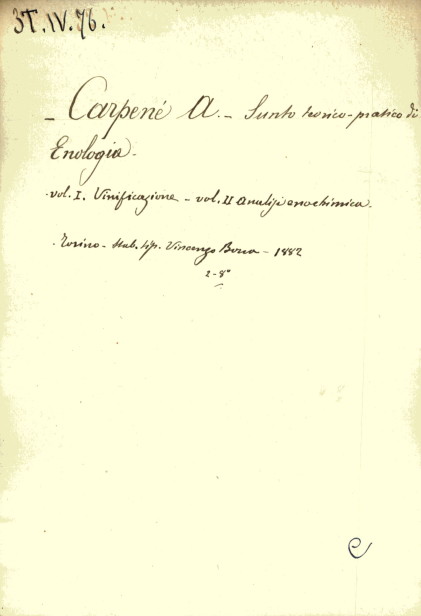 3T.IV.76.
- Carpené A. - Sunto teorico-pratico di
Enologia.
vol. I. Vinificazione - vol. II Analisi enochimica.
Torino - Stab. tip. Vincenzo Bona - 1882
2-8°
e